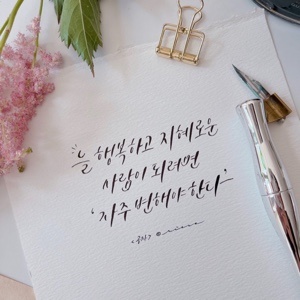 늘 행복하고 지혜로운
사람이 되려면
‘자주 변해야 한다’
<공자>